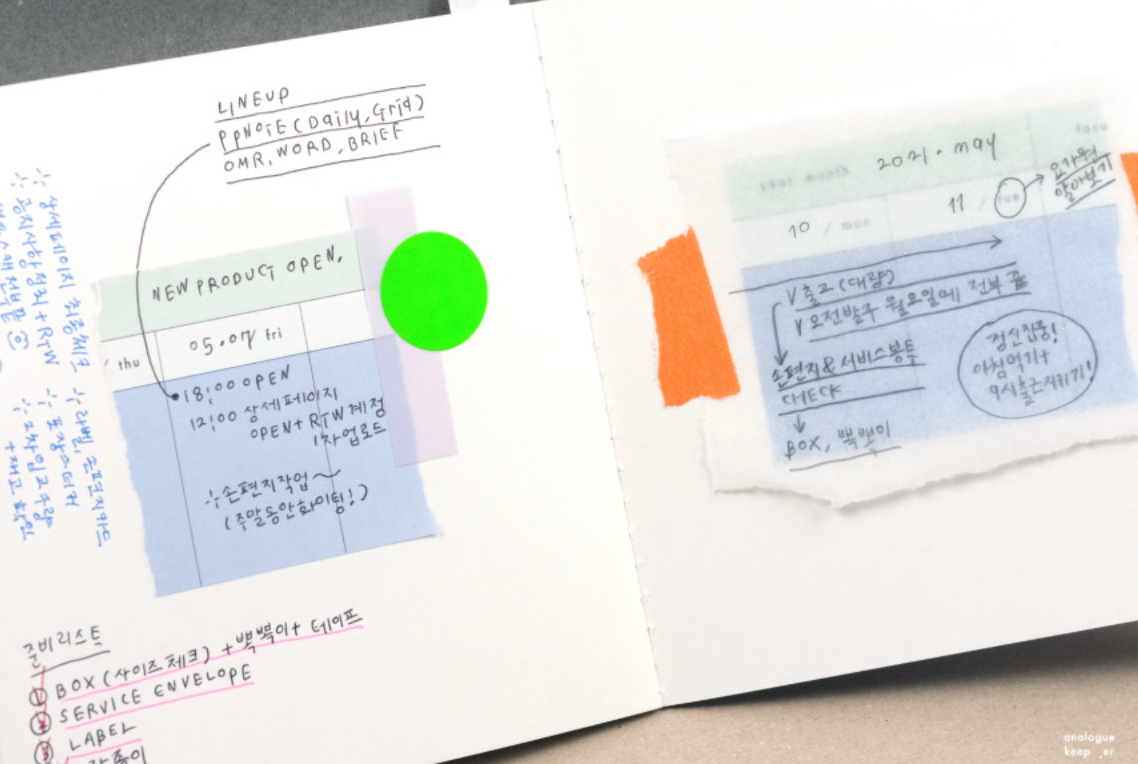 LINEUP
PPNOTE (Daily, Grid)
OMR, WORD, BRIEF
NEW PRODUCT OPEN.
thu
05.07/ fri
18:00 OPEN
12:00 상세페이지
OPEN + RTW계정
1차업로드
손편지작업~
(주말동안화이팅!)
상세페이지 최종체크
공지사항 정리 + RTW
라벨, 손편지카드
+ 재고 확인
준비리스트
① BOX (사이즈 체크) + 뽁뽁이 + 테이프
② SERVICE ENVELOPE
③ LABEL
2021. may
10 / mon
11 / tue
요가원
알아보기
V 출고 (대량)
V 오전발주 월요일에 전부 끝
손편지 & 서비스봉투
CHECK
BOX, 뽁뽁이
정신집중!
아침먹기+
9시출근지키기!
analogue
keep_er